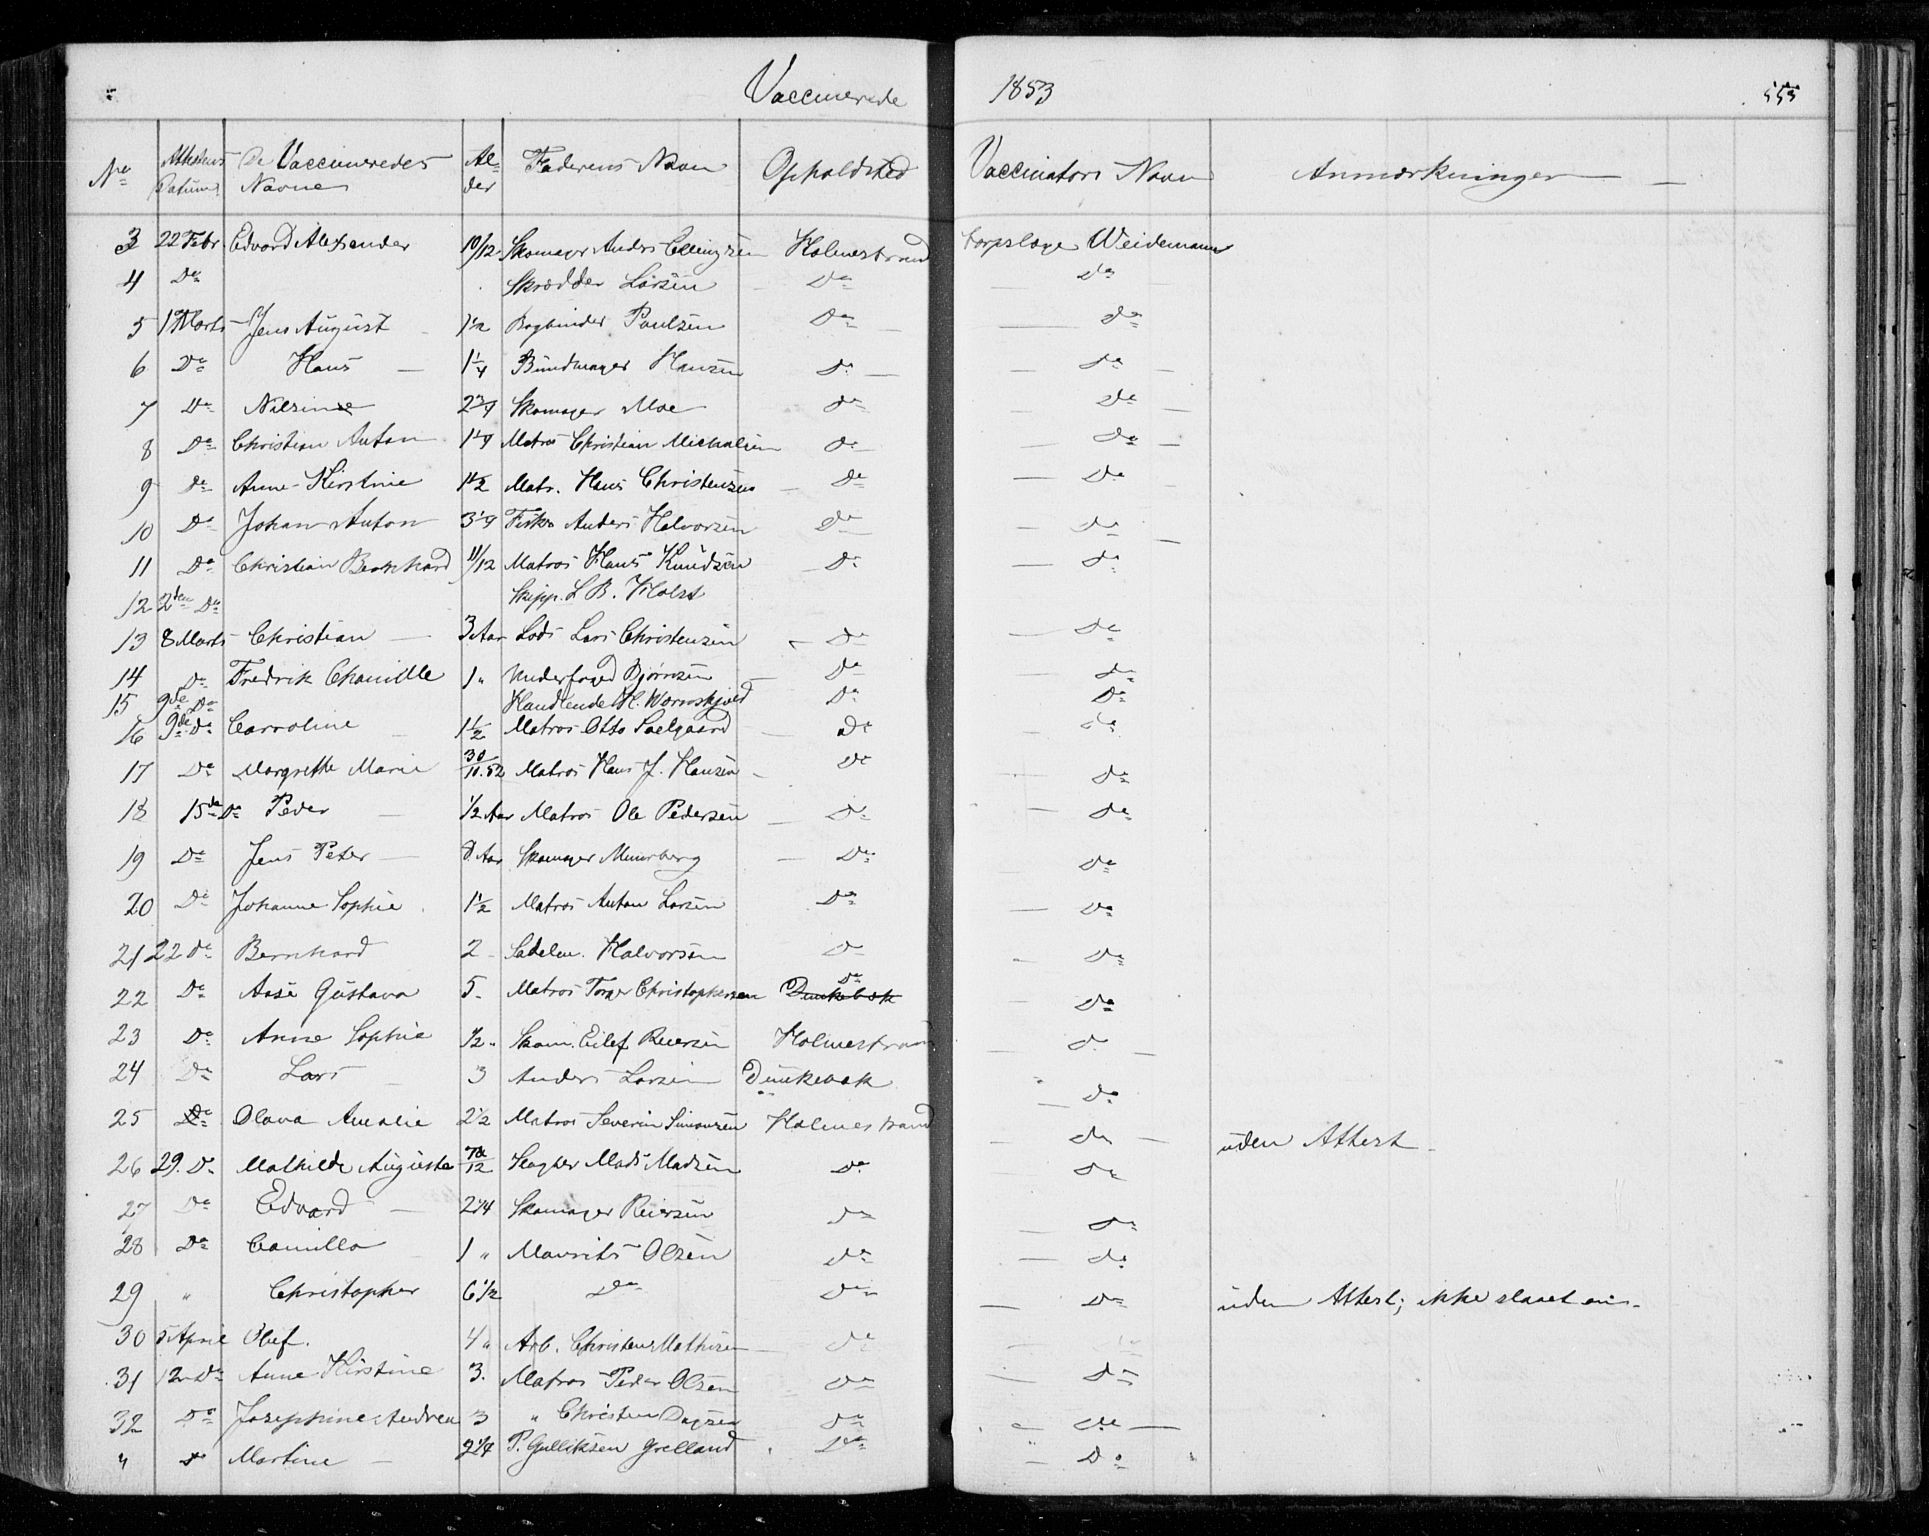 Vaccinerede 1853 553
No Attestens Datum De Vaccineredes Navne Alder Faderens Navn Opholdsted Vaccinators Navn Anmærkninger
3 22 Febr Edvard Alexander 10/12 Skomager Anders Ellingsen Holmestrand Corpslæge Weidemann
4 Do Skrædder Larsen Do do
5 1 Marts Jens August 1 1/2 Bogbinder Paulsen Do do
6 Do Hans 1 1/4 Bundtmager Hansen Do do
7 Do Nilsine 2 3/4 Skomager Moe do do
8 Do Christian Anton 1 1/4 Matros Christian Michalsen do do
9 do Anne Kirstine 1 1/2 Matr. Hans Christensen do Do
10 Do Johan Anton 3 1/4 Fisker Anders Halvorsen do do
11 Do Christian Bernhard 11/12 Matros Hans Knudsen Do do
12 2den Do Skipp. L B. Holst
13 8 Marts Christian 3 Aar Lods Lars Christensen Do do
14 Do Fredrik Chamille 1 " Underfoged Bjørnsen Do do
15 9de Do Handlende H. Wornskjold Do Do
16 9de do Carroline 1 1/2 Matros Otto Soelgaard do do
17 Do Margrethe Marie 30/11.52 Matros Hans J. Hansen do do
18 15de Do Peder 1/2 Aar Matros Ole Pedersen Do do
19 Do Jens Peter 8 Aar Skomager Do do
20 Do Johanne Sophie 1 1/2 Matros Anton Larsen Do Do
21 22 do Bernhard 2 Sadelm. Halvorsen Do
22 Do Aase Gustava 5 Matros Torger Christophersen Do Do
23 Do Anne Sophie 1/2 " Skom. Eilef Reiersen Holmestrand do
24 Do Lars 3 Anders Larsen Dunkebæk do
25 Do Olava Amalie 2 1/2 Matros Severin Simonsen Holmestrand do uden Attest
26 29. Do Mathilde Augusta /12 Slagter Mads Madsen Do do
27 Do Edvard 2 1/4 Skomager Reiersen do do
28 Do Camilla 1 " Mavrits Olsen do do
29 " Christopher 6 1/2 Do Do Do uden Attest; ikke slaaet an
30 5 April Olef. 4 " Arb. Christen Mathisen do
31 12 Do Anne Kirstine 3. Matros Peder Olsen do do
32 Do Josephine Andrea 3 " Christen Dagsen do do
" do Martine 2 1/4 P. Gulliksen Grelland Do Do